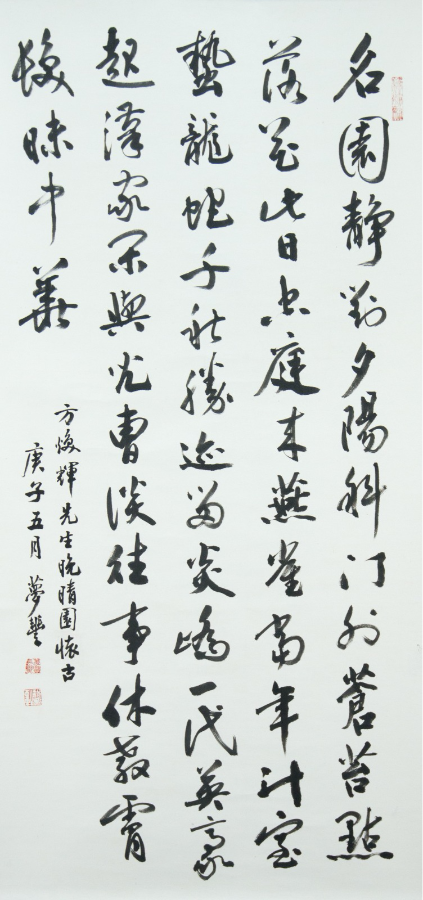 名園靜對夕陽斜門外蒼苔點
落花此日空庭来燕雀當年斗室
蟄龍蛇千秋勝迹留炎嶠一代英豪
起漢家閑與兒曹談往事休教
昧中華
方煥輝先生晚晴園懷古
庚子五月 夢豐